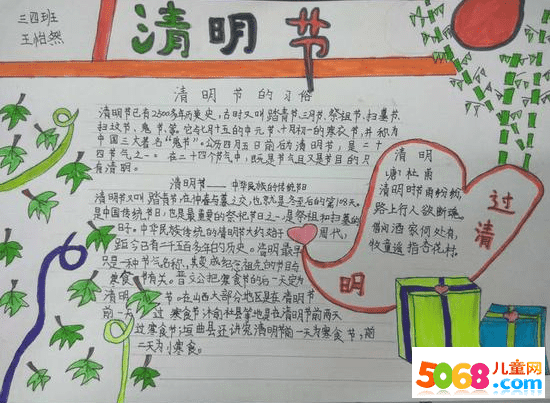 三四班
王怡然
清明节
清明节的习俗
清明节已有2500多年历史,古时又叫踏青节、三月节、祭祖节、扫墓节、
扫坟节、鬼节等。它与七月十五的中元节、十月初一的寒衣节,并称为
中国三大著名"鬼节"。公历四月五日前后为清明节,是二
十四节气之一。在二十四个节气中,既是节气又是节日的只
有清明。
清明节——中华民族的传统节日
清明节又叫踏青节,在仲春与暮春之交,也就是冬至后的第108天。
是中国传统节日,也是最重要的祭祀节日之一,是祭祖和扫墓的
日子。中华民族传统的清明节大约始于周代,
距今已有二千五百多年的历史。清明最早
只是一种节气的名称,其变成纪念祖先的节日与
寒食节有关。晋文公把寒食节的后一天定为
清明节。在山西大部分地区是在清明节
前一天过寒食节
过寒食节;垣曲县还讲究清明节前一天为寒食节,前
二天为小寒食。
清明
唐 杜甫
清明时节雨纷纷,
路上行人欲断魂。
借问酒家何处有,
牧童遥指杏花村。
过
清
明
5068儿童网
www.5068.com